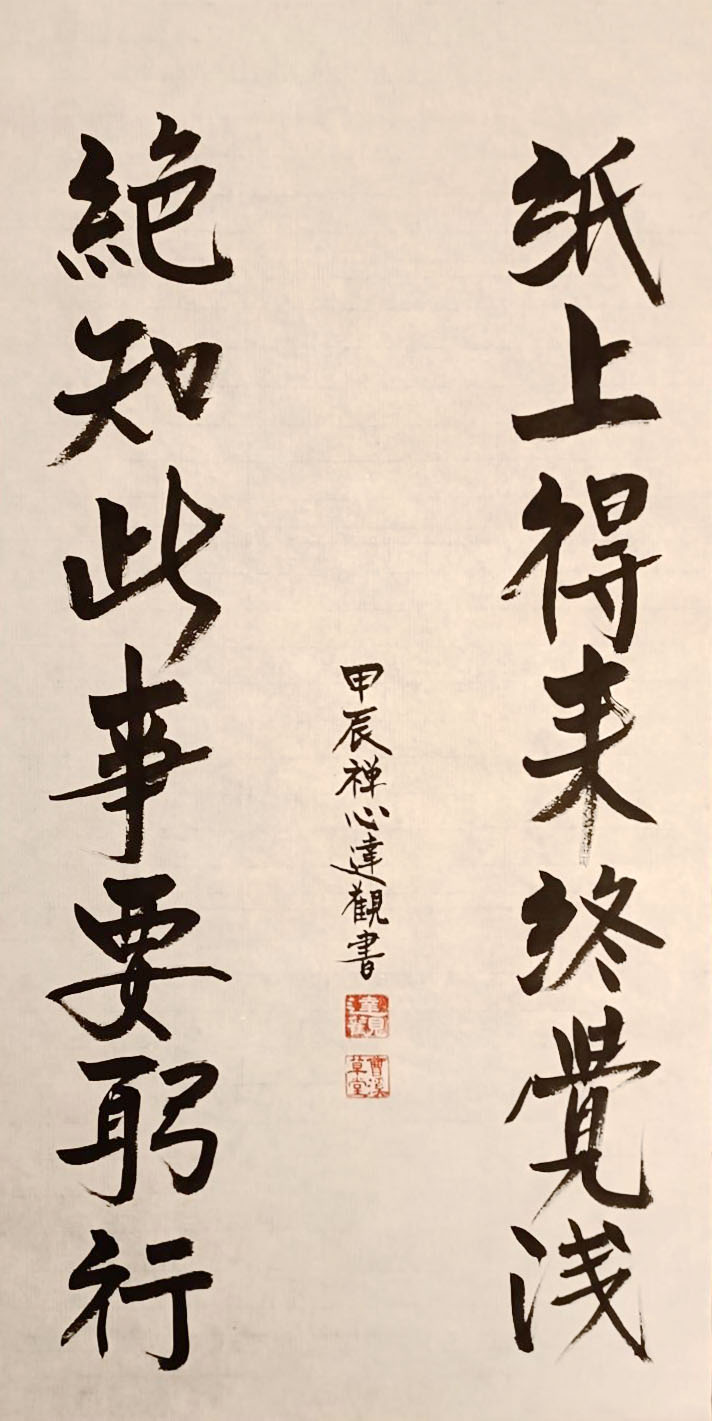 纸上得来终覺浅
絕知此事要躬行
甲辰禅心達觀書
達觀
曹溪草堂